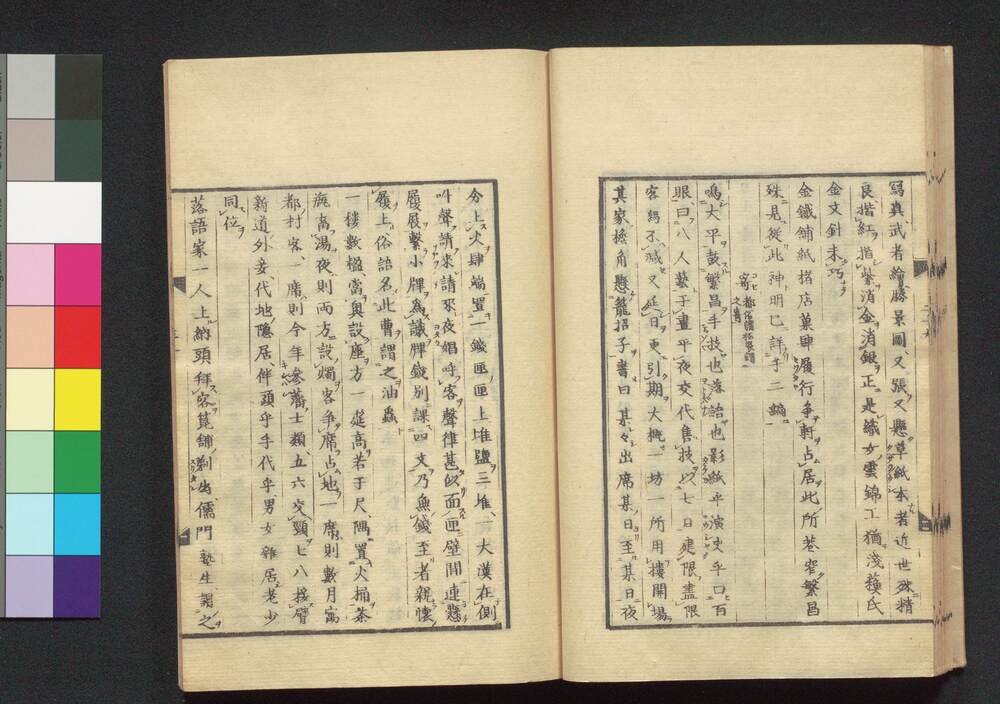 寫真武者繪勝景圖又張又懸草紙本者近世殊精
良揩紅揩紫消金消銀正是織女雲錦工猶淺蘓氏
金文針未巧
金鐵舗紙楮店菓肆履行争軒占居此所巷窄繁昌
殊見從此神明已詳于二編
寄
鳴大平鼓繁昌手技也落語也影紙乎演史乎口百
眼曰八人藝于晝乎夜交代售技以七日建限盡限
客舄不減又延日更引期大概一坊一所用樓開場
其家檐角懸籠招子書曰某々出席某日至某日夜
分上火肆端置一錢匣匣上堆鹽三堆大漢在側
叫聲請來請來夜娼呼客聲律甚似面匣壁間連懸
履屐繫小牌為識牌錢別課四文乃無錢至者親懷
履上俗語名此曹謂之油蟲
一樓數楹當奥設座方一筵高若干尺隅置火桶茶
瓶高湯夜則兩方設燭客争席占地一席則數月寓
都村客一席則今年參藩士類五六交頸七八接臂
新道外妾代地隱居伴頭乎手代乎男女雜居老少
同位
落語家一人上納頭拜客篦舗剃出儒門塾生謂之